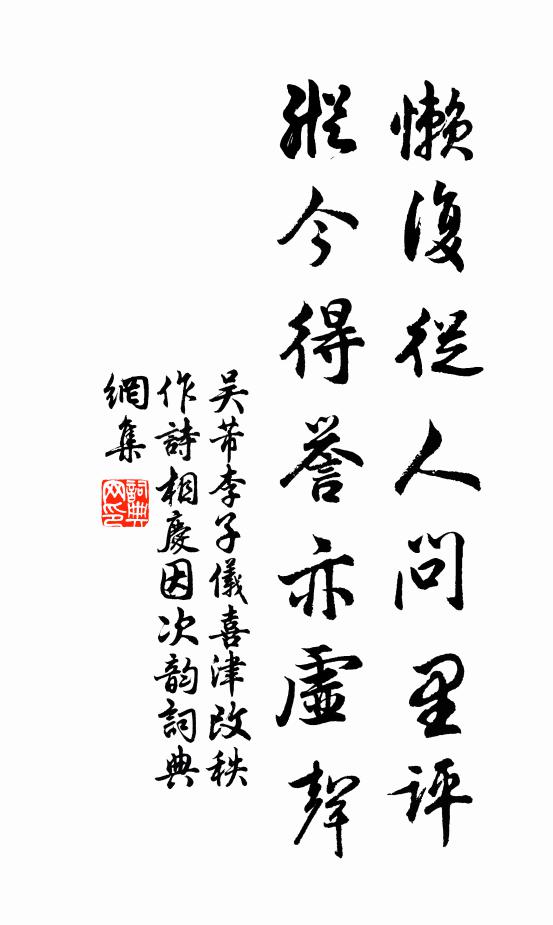 懶復從人問里評
縱今得誉亦虛聲
吴芾李子儀喜津改秩
作詩相慶因次韵詞典
網集
詞典
网印